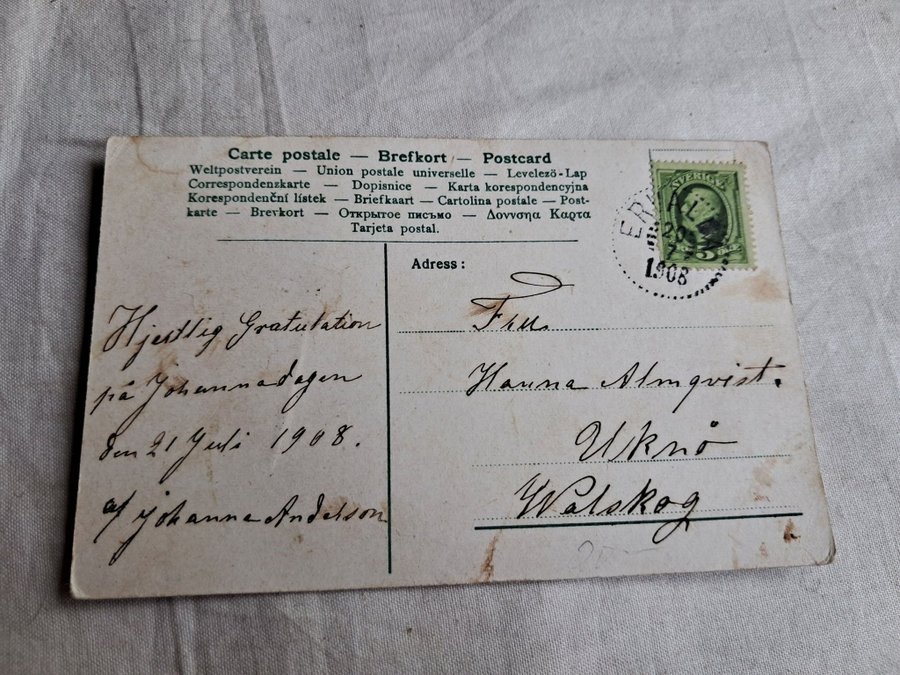 Carte postale — Brefkort — Postcard
Weltpostverein — Union postale universelle — Levelező-Lap
Correspondenzkarte — Dopisnice — Karta korespondencyjna
Korespondenční lístek — Briefkaart — Cartolina postale — Post-
karte — Brevkort — Открытое письмо — Δοννσηα Καρτα
Tarjeta postal.
SVERIGE
5
20
7
1908
Adress:
Hjertlig Gratulation
på Johannadagen
den 21 Juli 1908.
af Johanna Andersson
Fru
Hanna Almqvist.
Uknö
Walskog